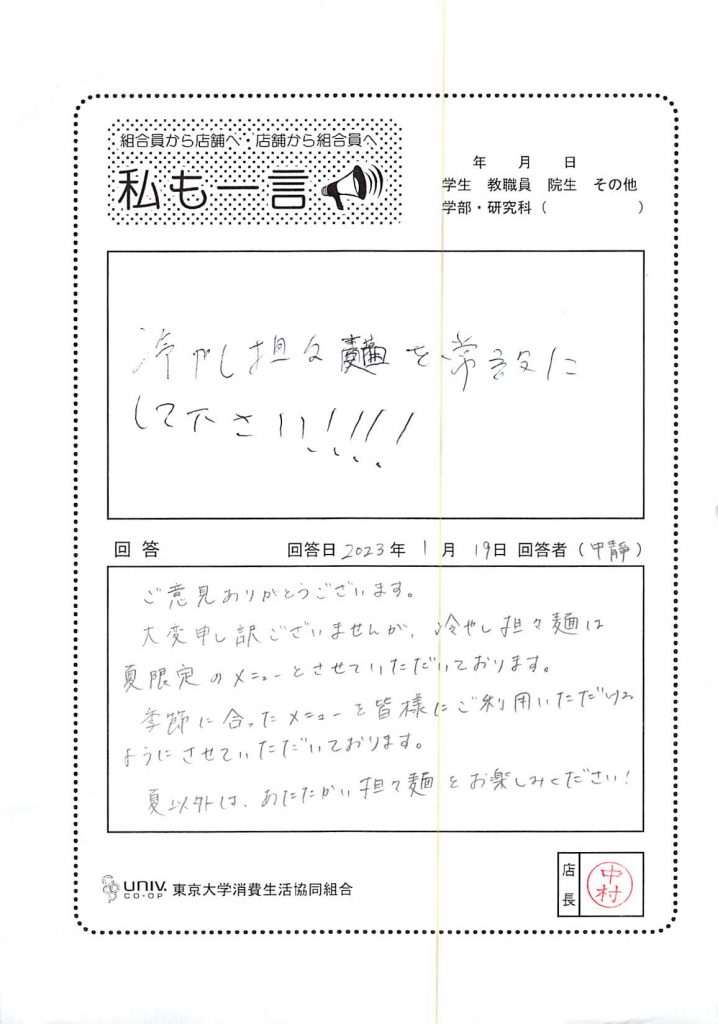 組合員から店舗へ・店舗から組合員へ
私も一言
年 月 日
学生 教職員 院生 その他
学部・研究科（ ）
冷やし担々麺を常設に
して下さい!!!!!
回答 回答日 2023年 1月 19日 回答者（中静）
ご意見ありがとうございます。
大変申し訳ございませんが、冷やし担々麺は
夏限定のメニューとさせていただいております。
季節に合ったメニューを皆様にご利用いただける
ようにさせていただいております。
夏以外は、あたたかい担々麺をお楽しみください!
UNIV.
CO-OP
東京大学消費生活協同組合
店長
中村